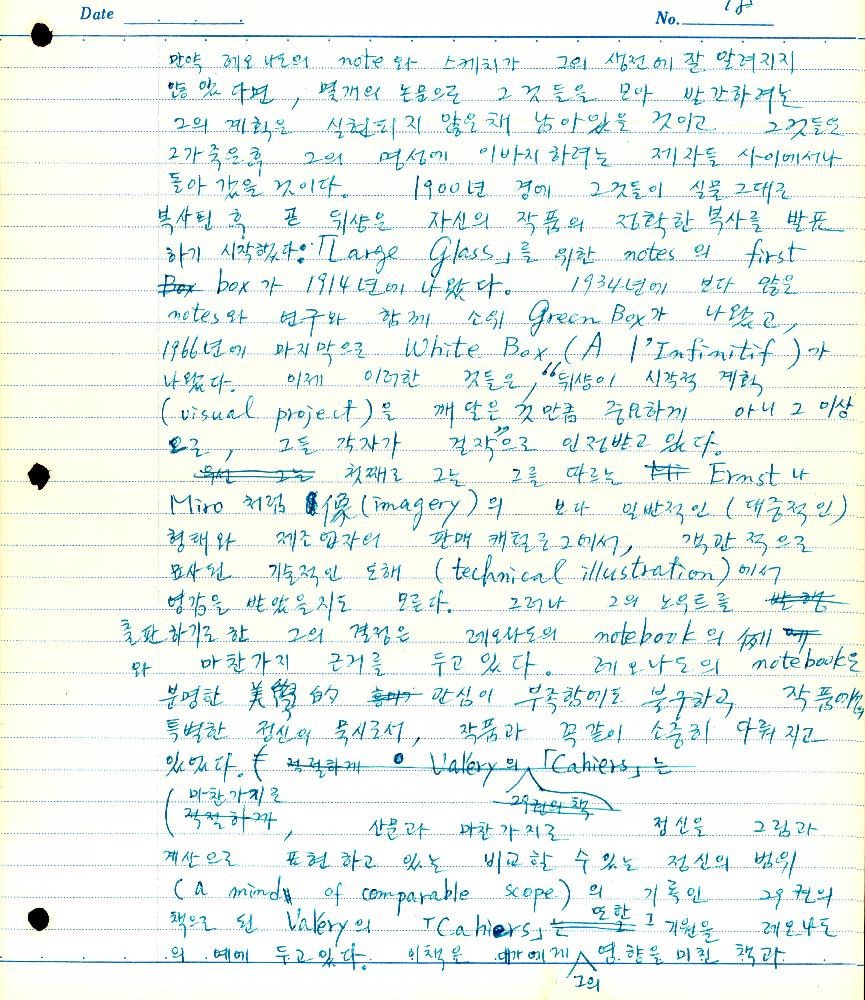 Date
No. 18
만약 레오나도의 note와 스케치가 그의 생전에 잘 알려지지
않았다면, 몇개의 논문으로 그것들을 모아 발간하려는
그의 계획은 실현되지 않은채 남아있을 것이고 그것들은
그가 죽은후 그의 명성에 이바지하려는 제자들 사이에서나
돌아 갔을 것이다. 1900년 경에 그것들이 실물 그대로
복사된 후 곧 뒤샹은 자신의 작품의 정확한 복사를 발표
하기 시작했다: 「Large Glass」를 위한 notes의 first
Box box가 1914년에 나왔다. 1934년에 보다 많은
notes와 연구와 함께 소위 Green Box가 나왔고,
1966년에 마지막으로 White Box (A l'Infinitif)가
나왔다. 이제 이러한 것들은, "뒤샹이 시각적 계획
(visual project)을 깨달은 것 만큼 중요하게 아니 그 이상
으로, 그들 각자가 걸작"으로 인정받고 있다.
첫째로 그는 그를 따르는 Ernst나
Miro 처럼 像(imagery)의 보다 일반적인 (대중적인)
형태와 제조업자의 판매 캐털로그에서, 객관적으로
묘사된 기술적인 도해 (technical illustration)에서
영감을 받았을지도 모른다. 그러나 그의 노우트를
출판하기로 한 그의 결정은 레오나도의 notebook의 例
와 마찬가지 근거를 두고 있다. 레오나도의 notebook은
분명한 美學的 관심이 부족함에도 불구하고, 작품에의
특별한 정신의 묵시로서, 작품과 꼭같이 소중히 다뤄지고
있었다. ( 적절하게 Valéry의 「Cahiers」는
29권의 책
(마찬가지로
적절하게, 산문과 마찬가지로 정신을 그림과
계산으로 표현하고 있는 비교할 수 있는 정신의 범위
(a mind of comparable scope)의 기록인 29권의
책으로 된 Valéry의 「Cahiers」는 또한 그 기원을 레오나도
의 예에 두고있다. 이책은 대가에게 영향을 미친 책과
그의